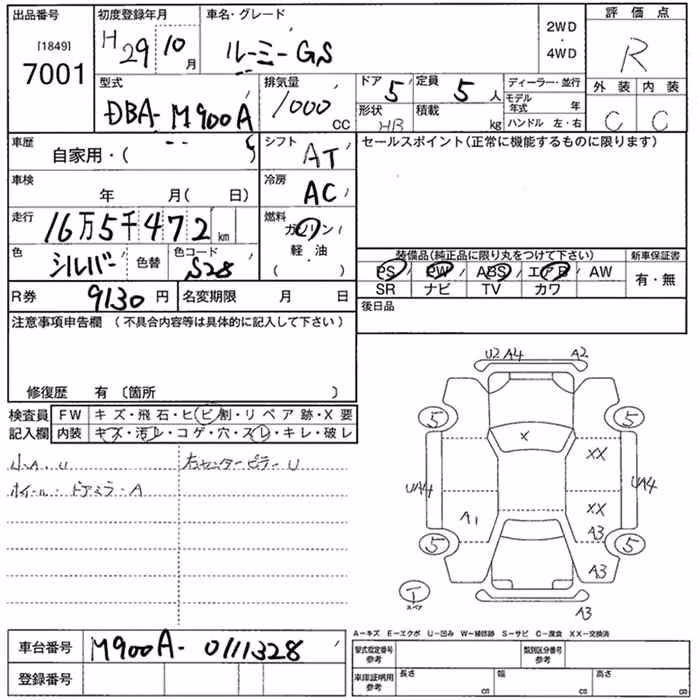 出品番号
[1849]
7001
初度登録年月
H29 10月
車名・グレード
ルーミーGS
2WD
・
4WD
評価点
R
外装 内装
C C
型式
DBA-M900A
排気量
1000 CC
ドア 5
定員 5人
形状 HB
積載 kg
ディーラー・並行
モデル年式 年
ハンドル 左・右
車歴
自家用・( )
シフト AT
セールスポイント(正常に機能するものに限ります)
車検
年 月( 日)
冷房 AC
走行
16万5千472km
燃料
ガソリン
軽・油
( )
色
シルバー 色替
色コード
S28
装備品(純正品に限り丸をつけて下さい)
PS PW ABS エアB AW
SR ナビ TV カワ
新車保証書
有・無
R券 9130円
名変期限 月 日
後日品
注意事項申告欄 (不具合内容等は具体的に記入して下さい)
修復歴 有〔箇所 〕
検査員
記入欄
FW キズ・飛石・ヒビ割・リペア跡・X要
内装 キズ・汚レ・コゲ・穴・スレ・キレ・破レ
小A.U
右センターピラーU
ホイール・ドアミラ・A
U2 A4 A2
5 5
X XX
UA4 UA4
A1 XX
A3
5 5
A3
T
スペア
A3
A−キズ E−エクボ U−凹み W−補修跡 S−サビ C−腐食 XX−交換済
車台番号 M900A-0111328
登録番号
型式指定番号
参考
類別区分番号
参考
車庫証明用
参考
長さ cm
幅 cm
高さ cm